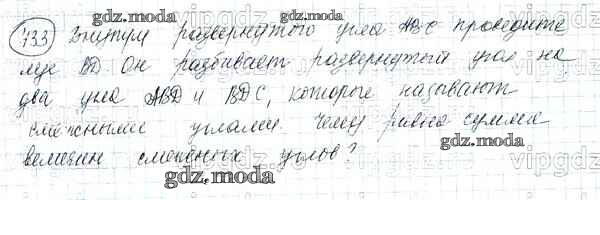 733 Внутри развернутого угла АВС проведите
луч BD. Он разбивает развернутый угол на
два угла ABD и BDC, которые называют
смежными углами. Чему равна сумма
величин смежных углов?
gdz.moda
gdz.moda
gdz.moda
gdz.moda
vipgdz
vipgdz
vipgdz